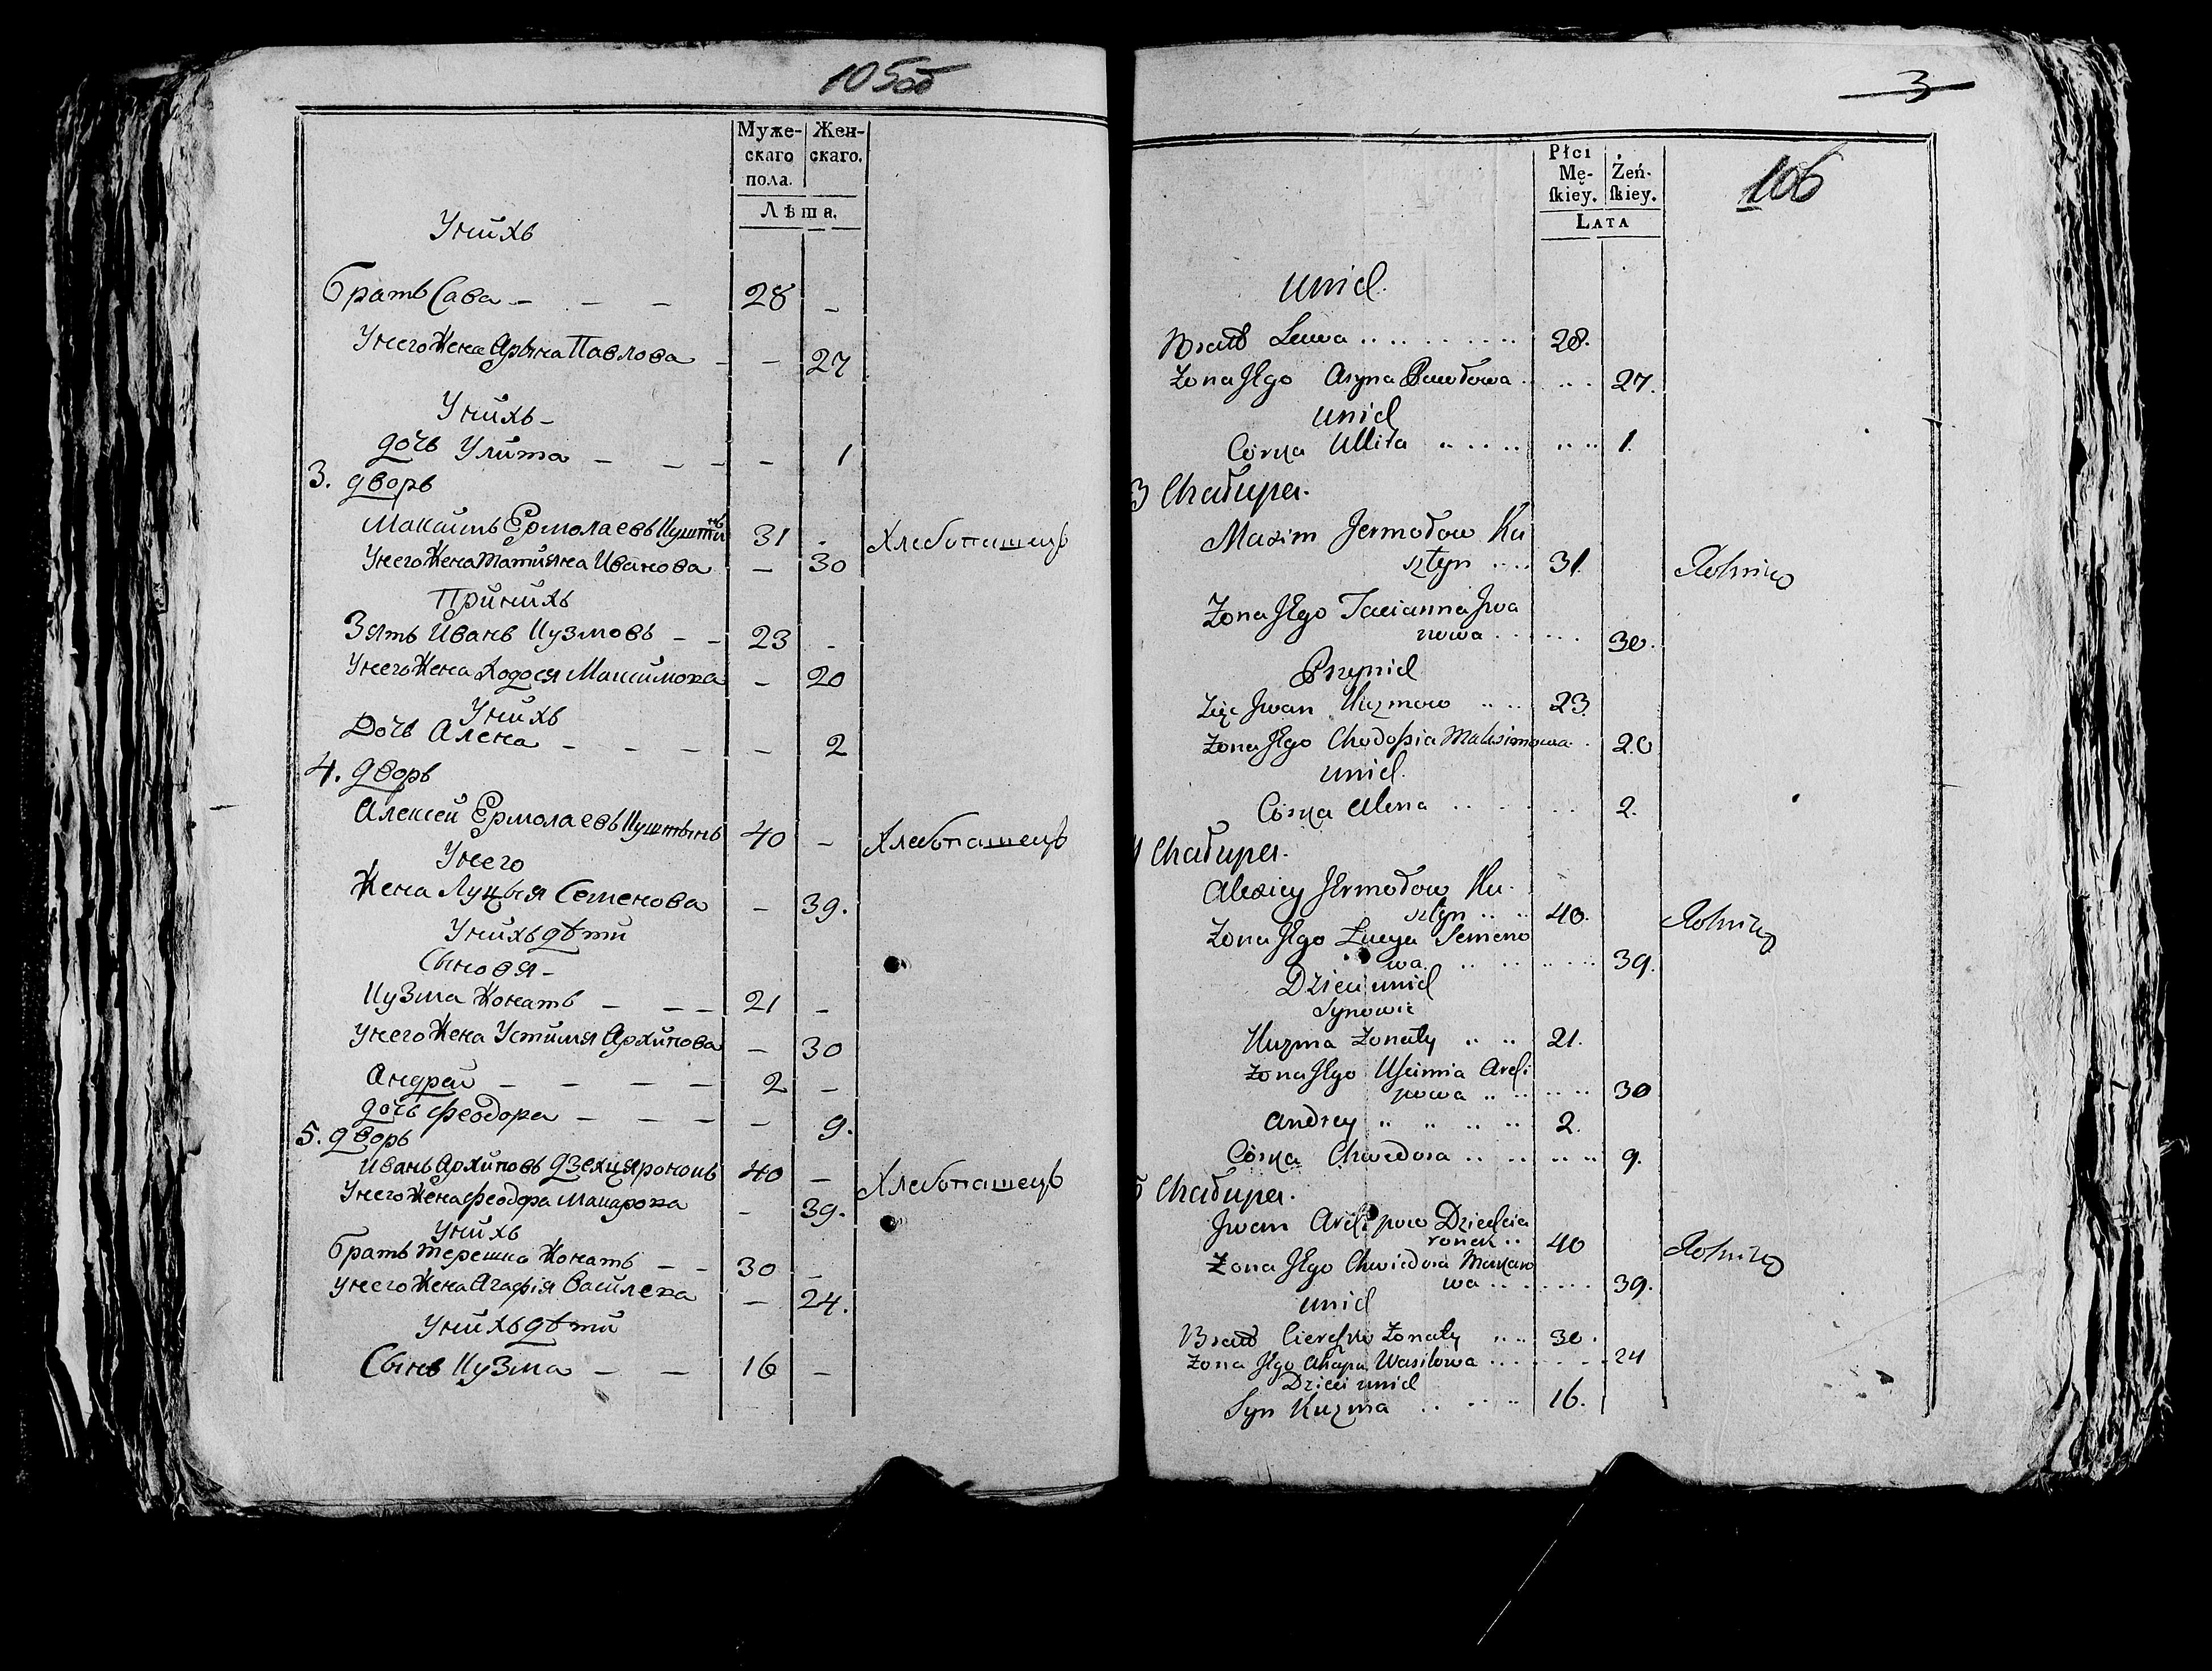 105об
Муже-
скаго
пола.
Жен-
скаго.
Лѣта.
Унихъ
братъ Сава — — — 28 —
Унего жена Арына Павлова — — 27
Унихъ —
дочъ Улита — — — — 1
3. дворъ
Максимъ Ермолаевъ Куштынъ 31 - Хлебопашецъ
Унего жена Татияна Иванова — 30
Принихъ
Зять Иванъ Кузмовъ — — 23 -
Унего жена Ходося Максимова — 20
Унихъ
Дочъ Алена — — — — 2
4. дворъ
Алексей Ермолаевъ Куштынъ 40 - Хлебопашецъ
Унего
Жена Луцыя Семенова — 39.
Унихъ дѣти
Сыновя —
Кузма Жонатъ — — — 21 —
унего жена Устимя Архипова — 30
Андрей — — — — 2 —
дочъ Феодора — — — — 9.
5. дворъ
Иванъ Архиповъ Дзехцяронокъ 40 — Хлебопашецъ
Унего жена Феодора Макарова - 39.
Унихъ
братъ Терешка Жонатъ — — 30 —
унего жена Агафія Васил — 24.
Унихъ дѣти
Сынъ Кузма — — 16 —
3
106
Płci
Mę-
ſkiéy.
Żeń-
ſkiey.
LATA
unich
Bratt Sawa .. .. .. 28.
Żona Jego Aryna Pawłowa .. .. 27.
unich
Córka Ullita .. .. .. .. 1.
3 Chałupa.
Maxim Jermołow Ku
sztyn .... 31. Rolnik
Żona Jego Tacianna Iwa
nowa ...... 30.
Przynich
Zięć Jwan Kuzmow .. .. 23.
Żona Jego Chodoſsia Maksimowa . 20
unich.
Córka Alena .. .. .. 2.
4 Chałupa.
Alexiey Jermołow Ku-
sztyn .. .. 40. Rolnik
Żona Jego Łucya Semeno
wa. .. .. .. .. 39.
Dzieci unich
Synowie
Kuzma Żonaty .. .. 21.
Żona Jego Uſcimia Archi
powa .. .. .. .. 30
Andrey .. .. .. .. 2.
Córka Chwedora .. .. .. .. 9.
5 Chałupa.
Jwan Archipow Dziechcia
ronek .. 40 Rolnik
Żona Jego Chwiedora Makaro
wa ...... 39.
unich
Bratt Cereſzko Żonaty .. .. 30.
Żona Jego Ahapa Wasilowa ...... 24
Dzieci unich
Syn Kuzma .. .. .. 16.